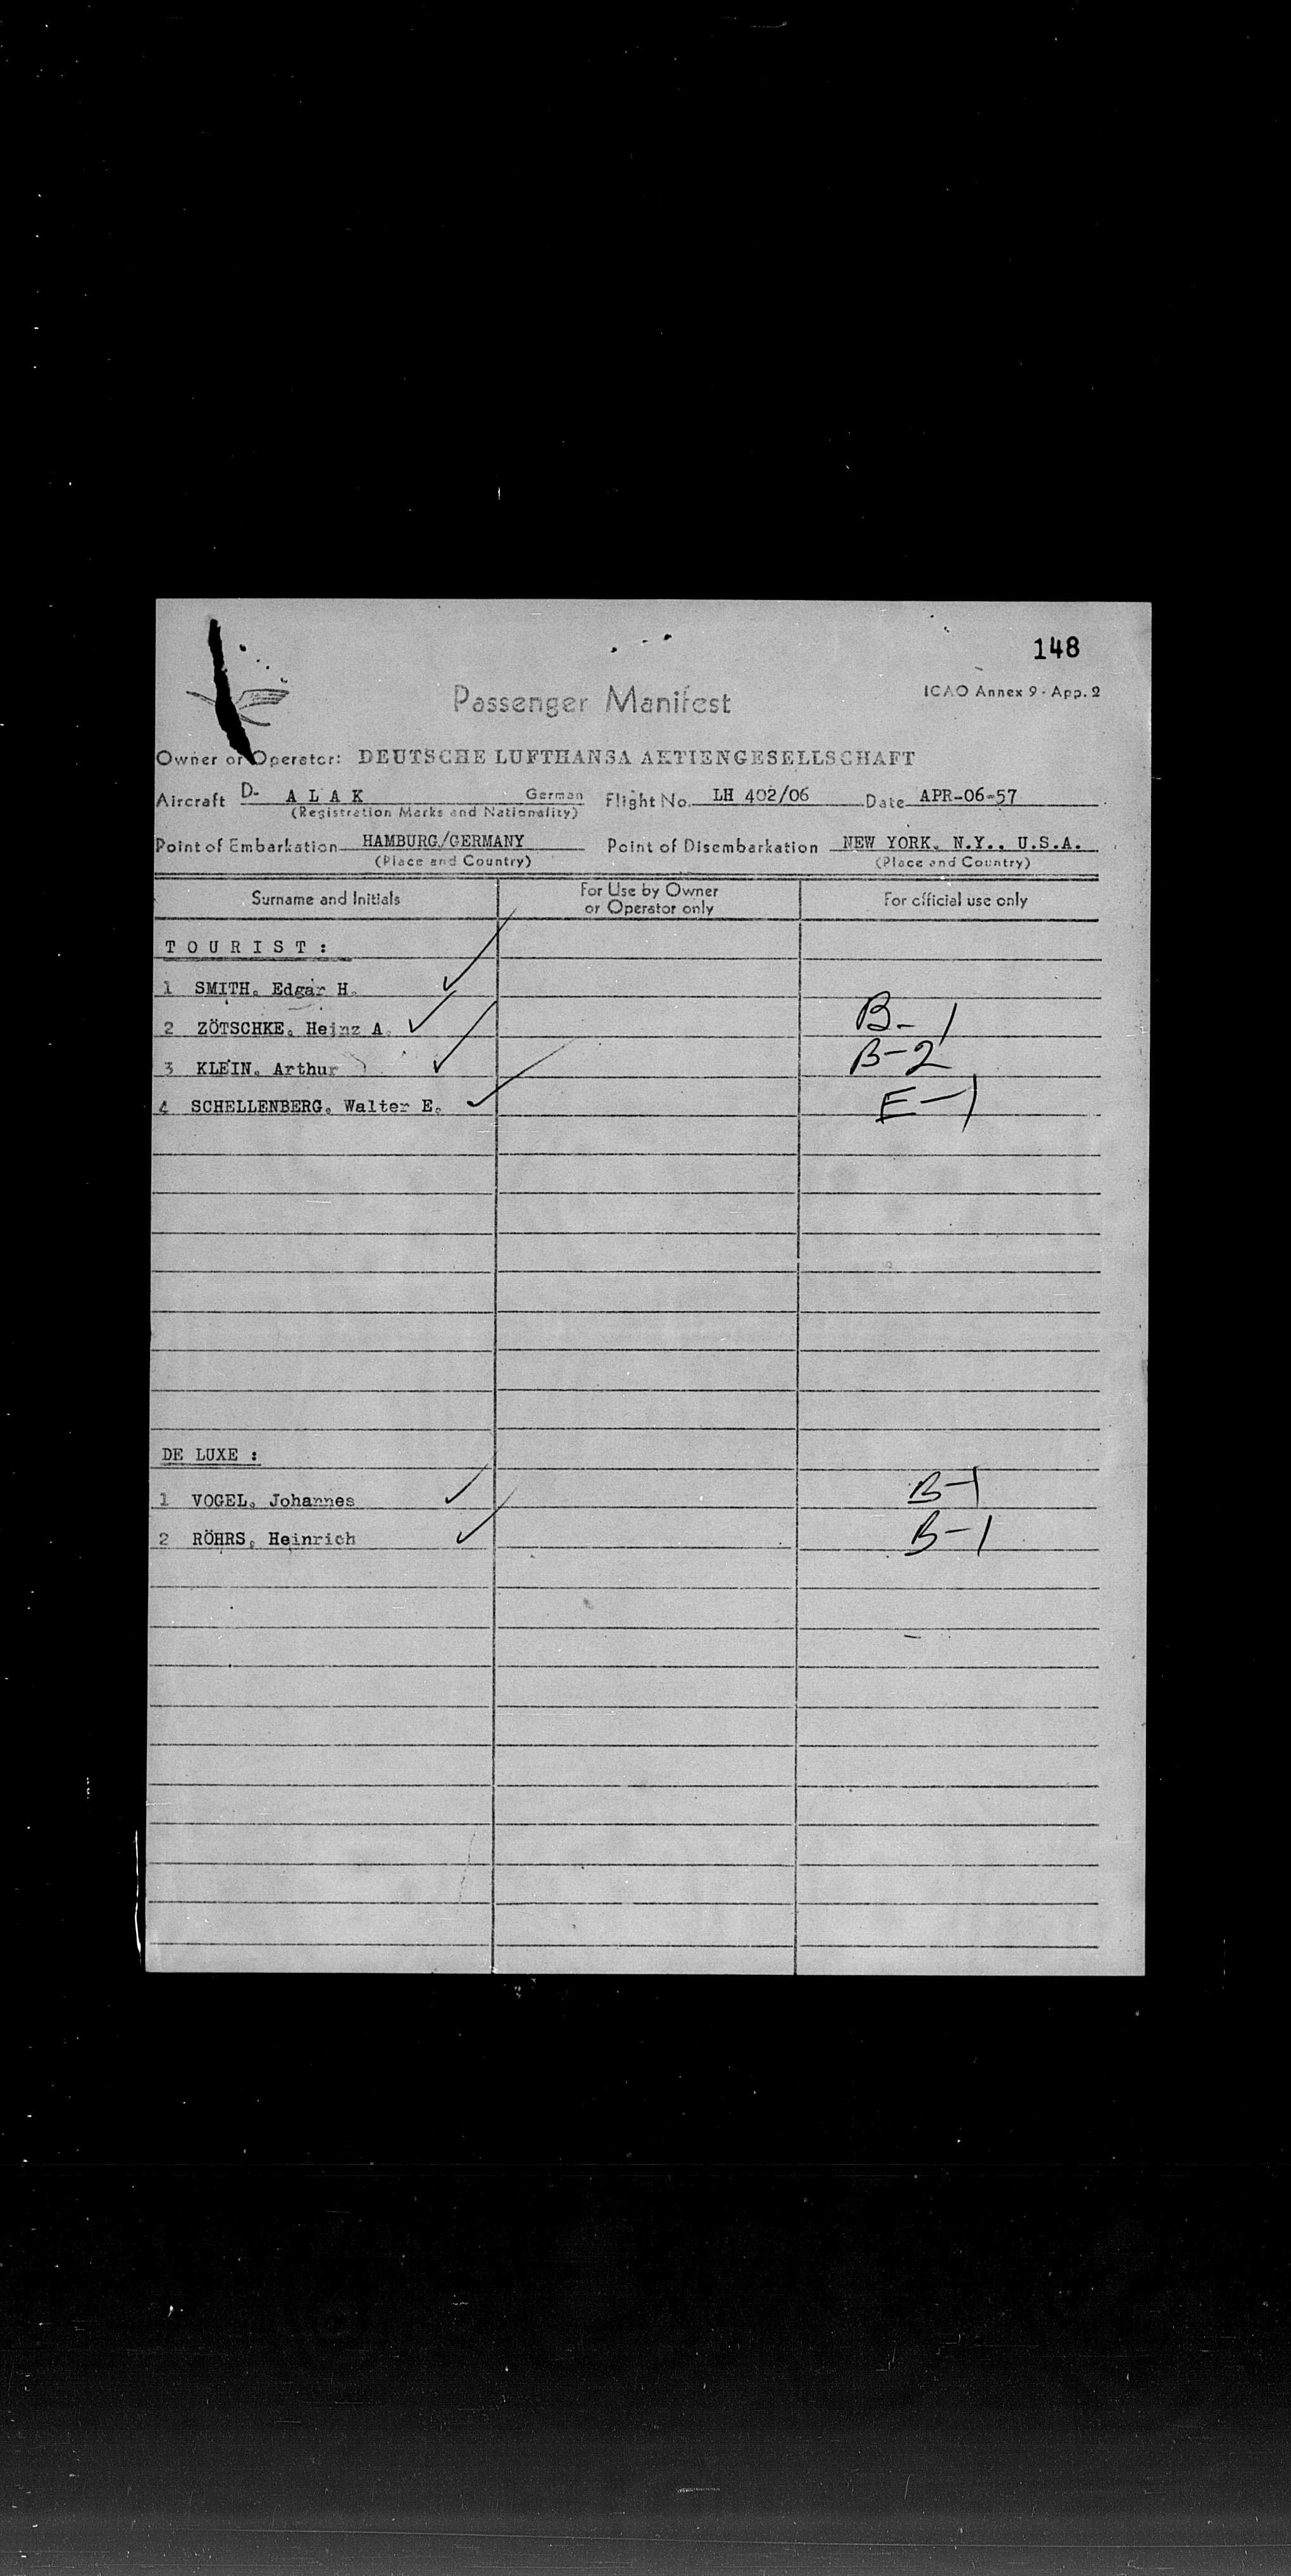 148
Passenger Manifest
ICAO Annex 9 - App. 2
Owner or Operator: DEUTSCHE LUFTHANSA AKTIENGESELLSCHAFT
Aircraft D- A L A K German Flight No. LH 402/06 Date APR-06-57
(Registration Marks and Nationality)
Point of Embarkation HAMBURG/GERMANY Point of Disembarkation NEW YORK, N.Y., U.S.A.
(Place and Country) (Place and Country)
Surname and Initials For Use by Owner or Operator only For official use only
T O U R I S T :
1 SMITH, Edgar H.
2 ZÖTSCHKE, Heinz A. B-1
3 KLEIN, Arthur B-2
4 SCHELLENBERG, Walter E. E-1
DE LUXE :
1 VOGEL, Johannes B-1
2 RÖHRS, Heinrich B-1